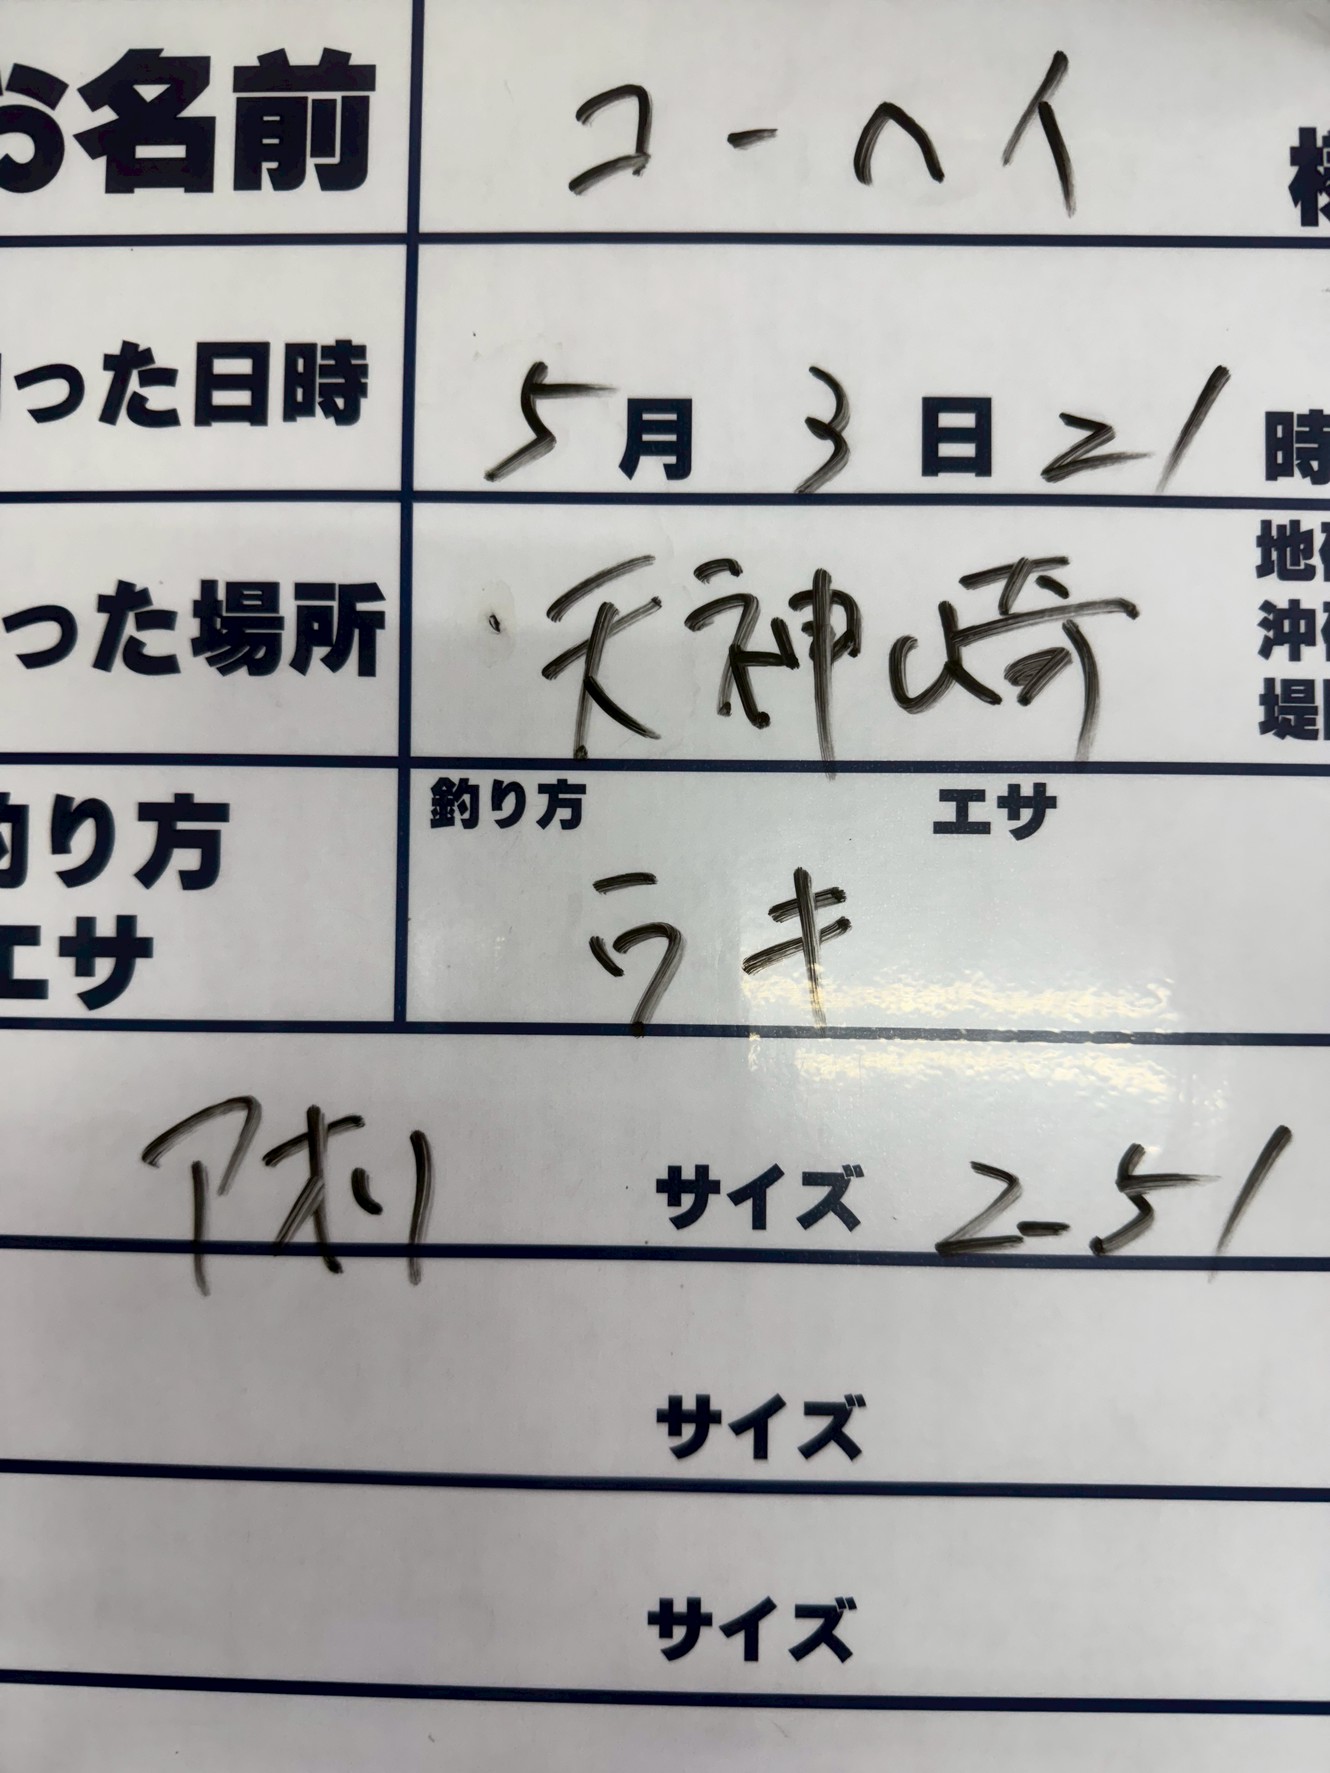 お名前 コーヘイ 様
った日時 5月 3日 21時
った場所 天神崎
地
沖
堤
釣り方 エサ
釣り方 ウキ
エサ
アオリ サイズ 2-51
サイズ
サイズ